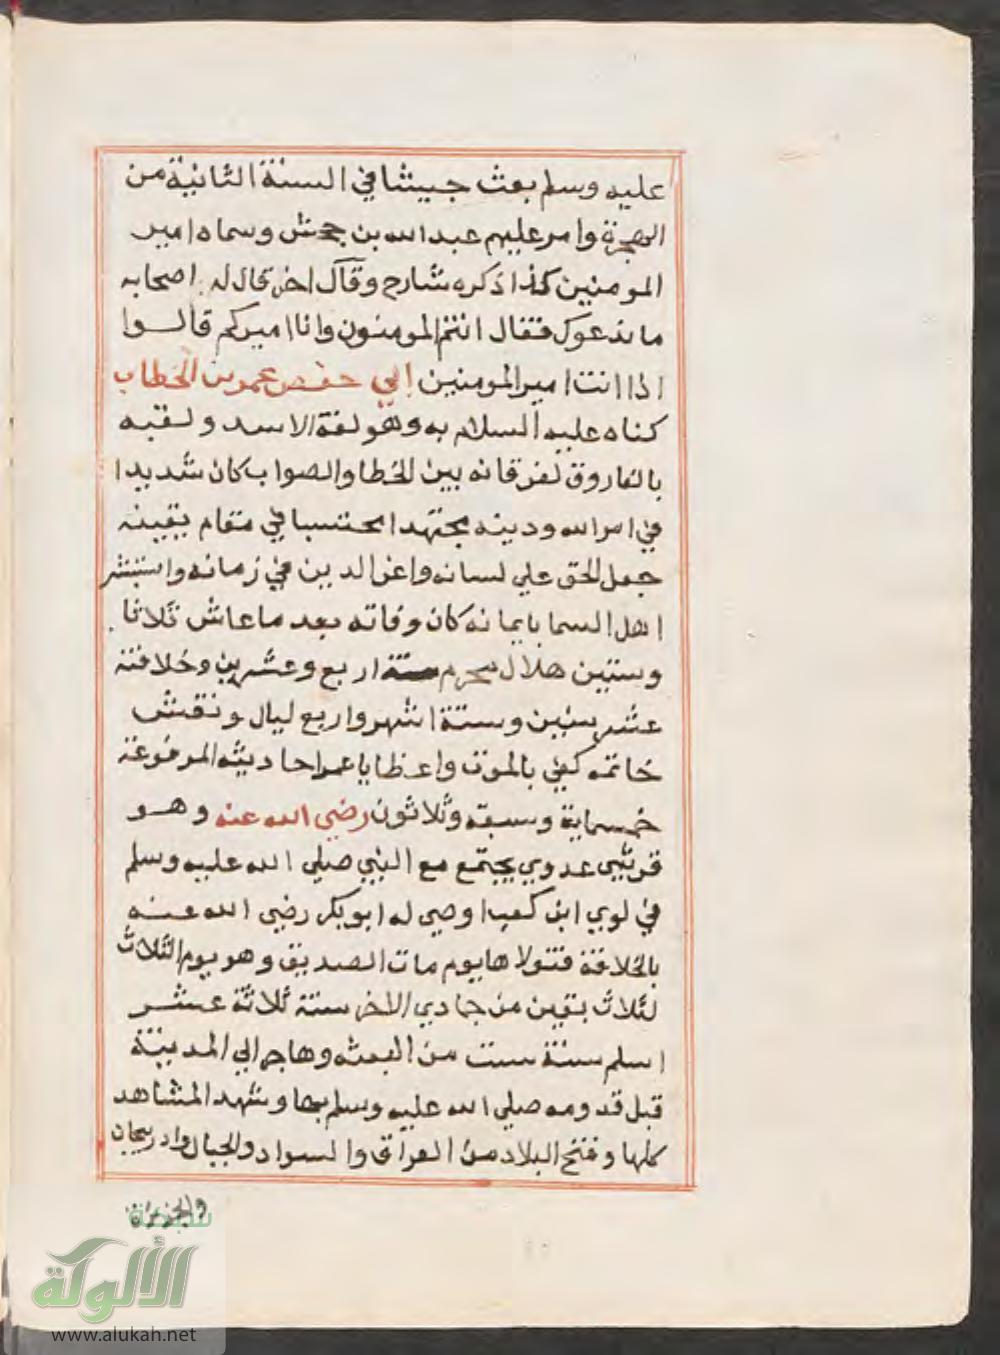 عليه وسلم بعث جيشا في السنة الثانية من
الهجرة وامر عليهم عبد الله بن جحش وسماه امير
المومنين كذا ذكره شارح وقال اخر قال له اصحابه
ما ندعوك فقال انتم المومنون وانا اميركم قالوا
اذا انت امير المومنين ابي حفص عمر بن الخطاب
كناه عليه السلام به وهو لغة الاسد ولقبه
بالفاروق لفرقانه بين الخطا والصواب كان شديدا
في امر الله ودينه مجتهدا محتسبا في مقام يقينه
جعل الحق علي لسانه واعز الدين في زمانه واستبشر
اهل السما بايمانه كان وفاته بعد ما عاش ثلاثا
وستين هلال محرم سنة اربع وعشرين وخلافته
عشر سنين وستة اشهر واربع ليال ونقش
خاتمه كفي بالموت واعظا يا عمر احاديثه المرفوعة
خمسماية وسبعة وثلاثون رضي الله عنه وهو
قريشي عدوي يجتمع مع النبي صلي الله عليه وسلم
في لوي ابن كعب اوصي له ابو بكر رضي الله عنه
بالخلافة فتولاها يوم مات الصديق وهو يوم الثلاث
لثلاث بقين من جمادي الاخر سنة ثلاثة عشر
اسلم سنة ست من البعثه وهاجر الي المدينة
قبل قدومه صلي الله عليه وسلم بها وشهد المشاهد
كلها وفتح البلاد من العراق والسواد والجبال واذربيجان
والجزيرة
شبكة
الألوكة
www.alukah.net